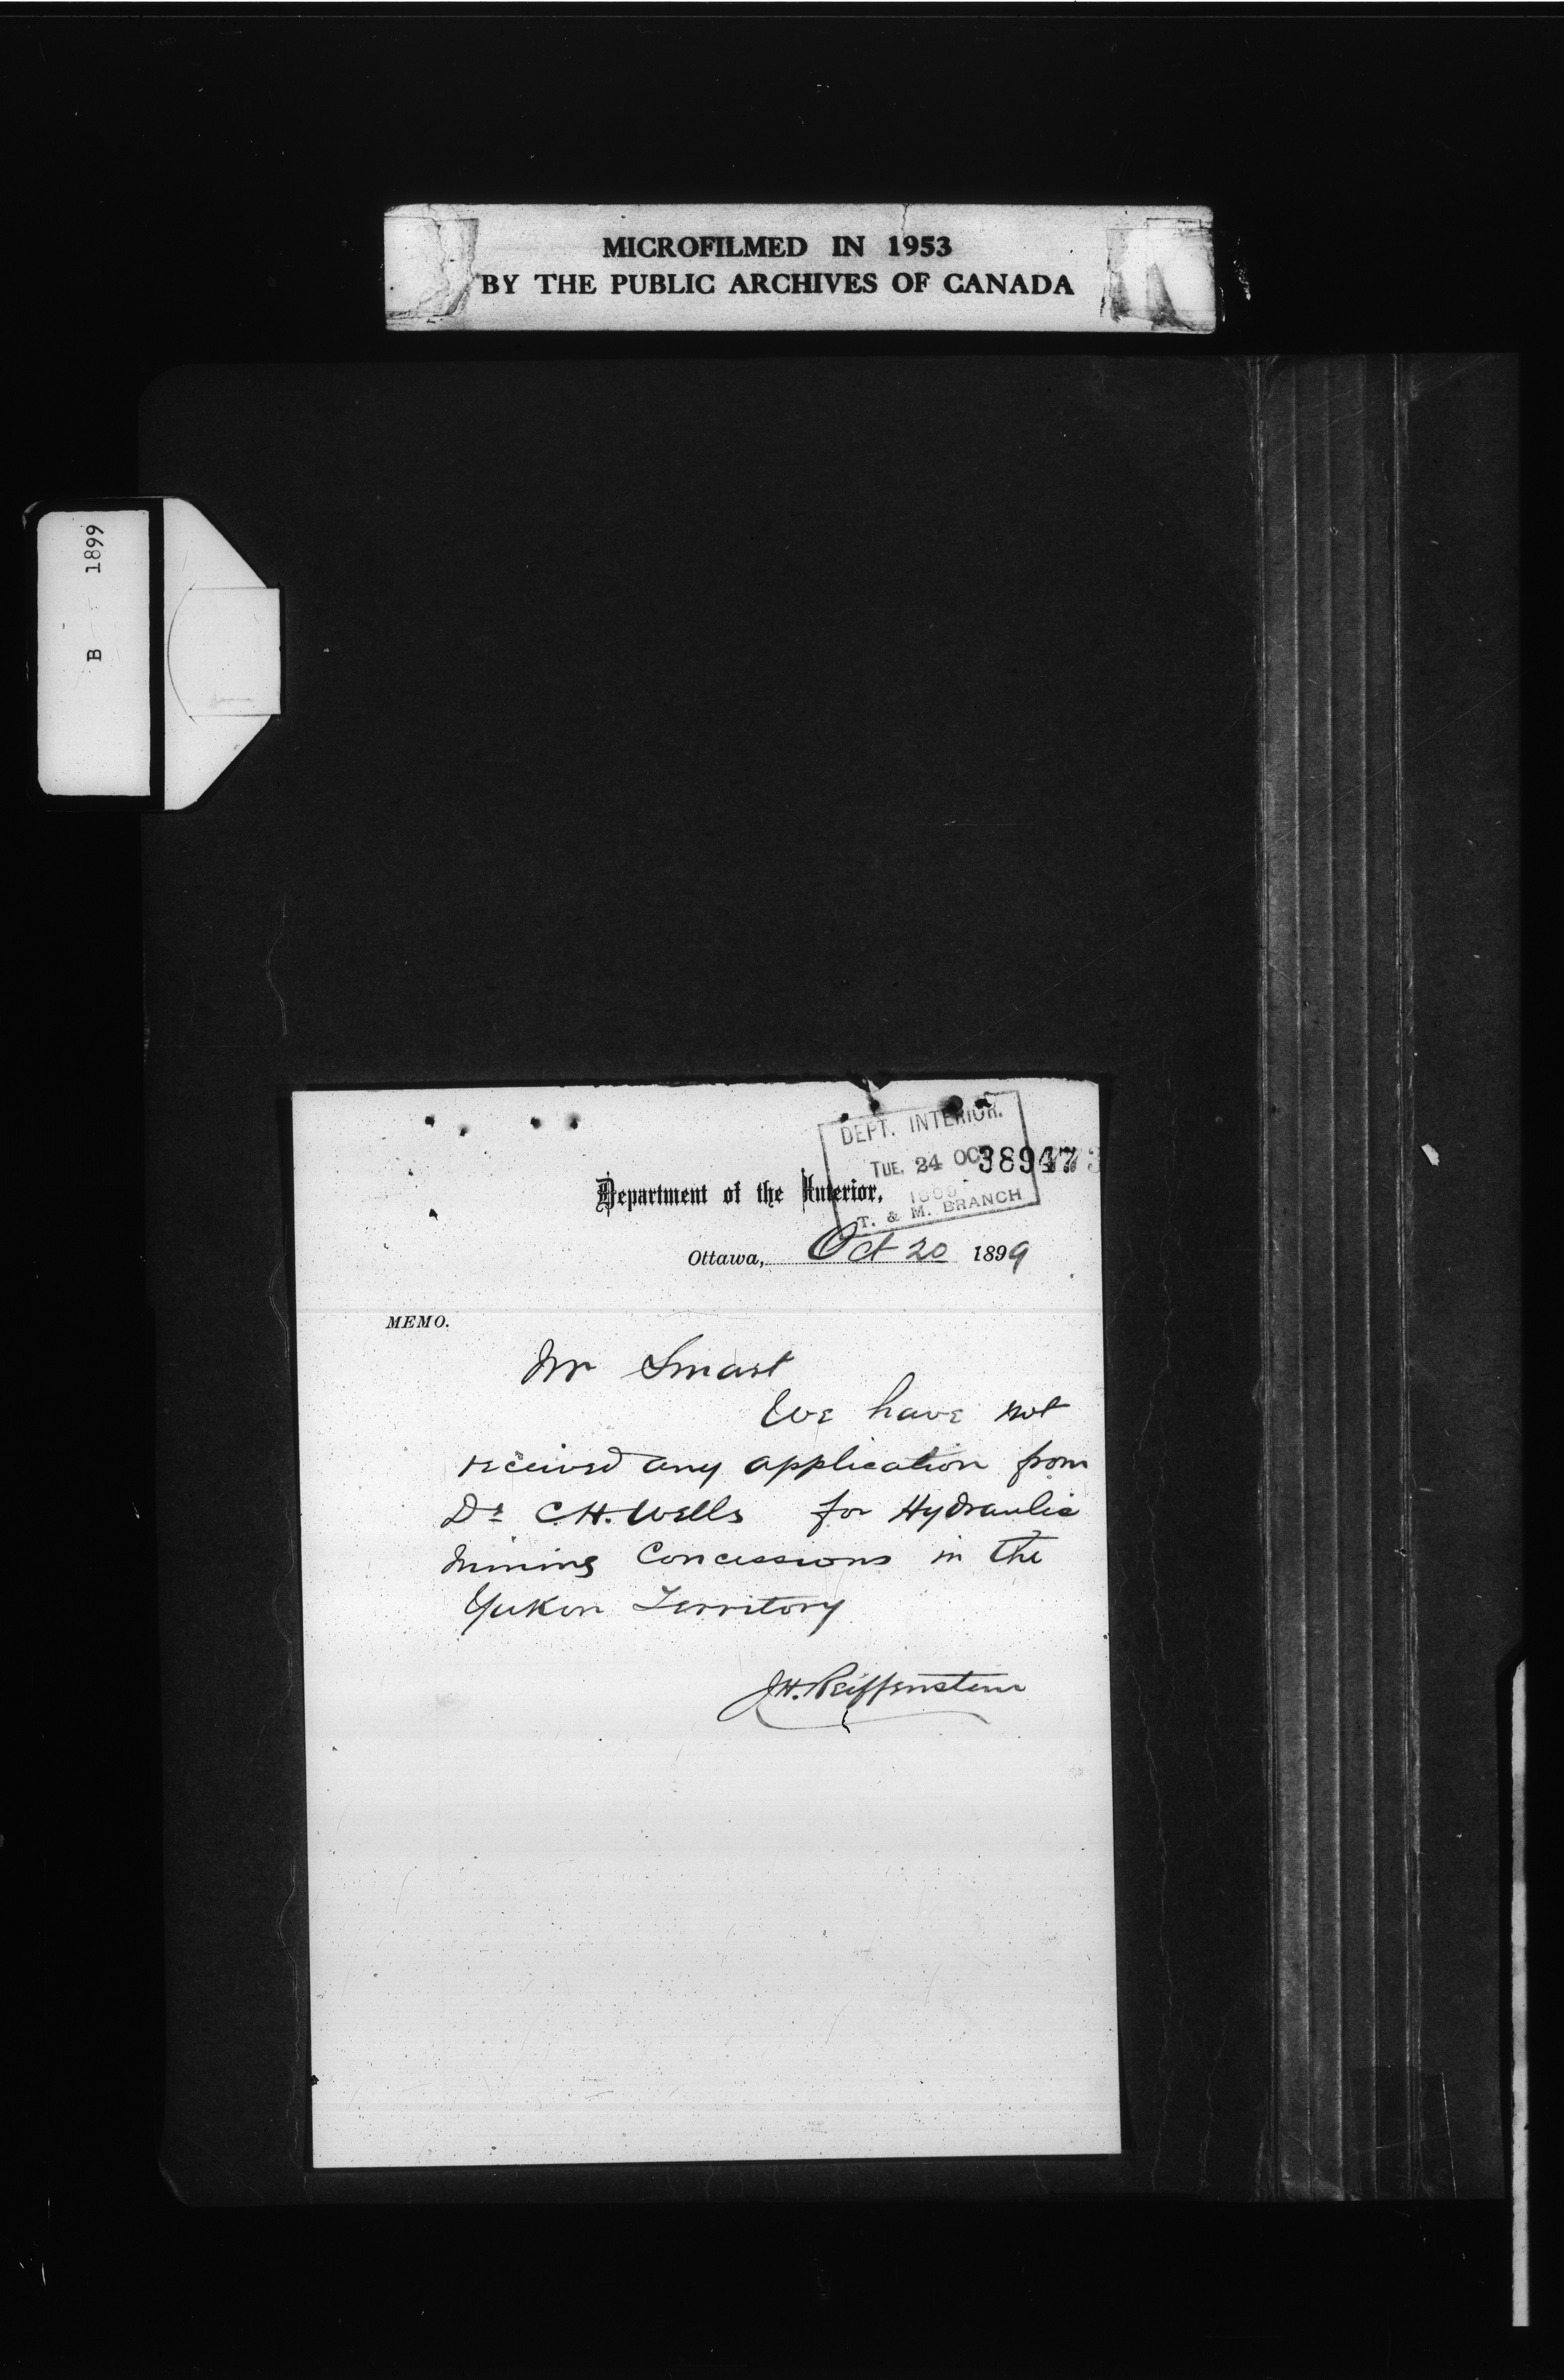 MICROFILMED IN 1953
BY THE PUBLIC ARCHIVES OF CANADA
B 1899
DEPT. INTERIOR.
TUE. 24 OCT
1899
T. & M. BRANCH
Department of the Interior,
Ottawa, Oct 20 1899
MEMO.
Mr Smart
We have not
received any application from
Dr C.H. Wells for Hydraulic
Mining Concessions in the
Yukon Territory
J.H. Reiffenstein